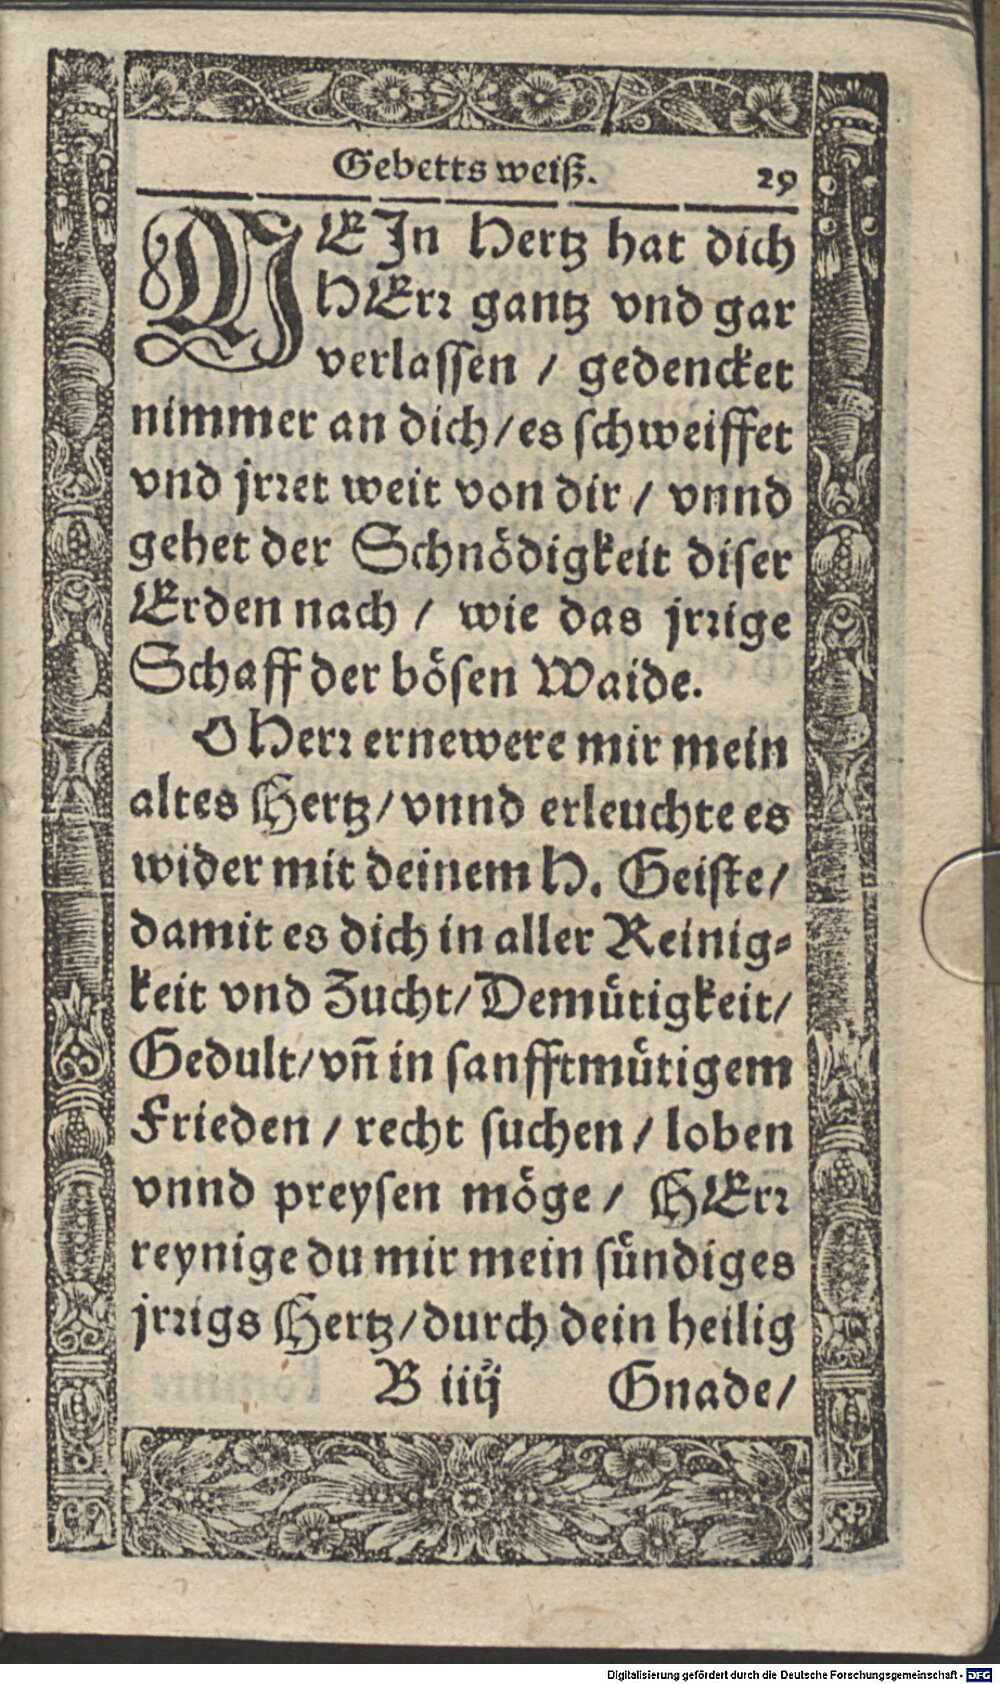 Gebetts weiß. 29
MEIn Hertz hat dich
HErr gantz vnd gar
verlassen / gedencket
nimmer an dich / es schweiffet
vnd jrret weit von dir / vnnd
gehet der Schnödigkeit diser
Erden nach / wie das jrrige
Schaff der bösen Waide.
O Herr ernewere mir mein
altes Hertz / vnnd erleuchte es
wider mit deinem H. Geiste /
damit es dich in aller Reinig-
keit vnd Zucht / Demütigkeit /
Gedult / vñ in sanfftmütigem
Frieden / recht suchen / loben
vnnd preysen möge / HErr
reynige du mir mein sündiges
jrrigs Hertz / durch dein heilig
B iiij Gnade /
Digitalisierung gefördert durch die Deutsche Forschungsgemeinschaft - DFG